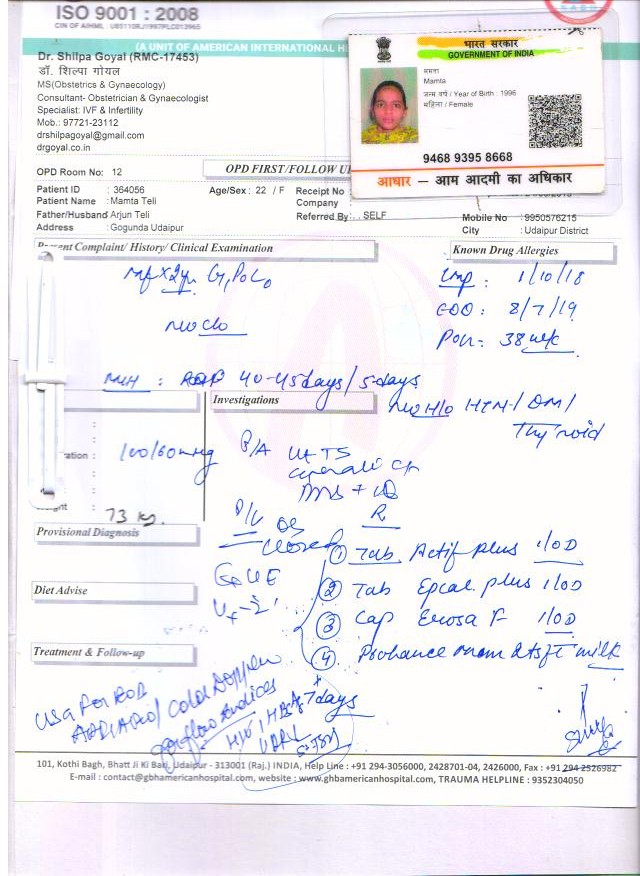 ISO 9001 : 2008
CIN OF AIHML
(A UNIT OF AMERICAN INTERNATIONAL H
Dr. Shilpa Goyal (RMC-17453)
डॉ. शिल्पा गोयल
MS(Obstetrics & Gynaecology)
Consultant- Obstetrician & Gynaecologist
Specialist: IVF & Infertility
Mob.: 97721-23112
drshilpagoyal@gmail.com
drgoyal.co.in
भारत सरकार
GOVERNMENT OF INDIA
ममता
Mamta
जन्म वर्ष / Year of Birth : 1996
महिला / Female
9468 9395 8668
आधार — आम आदमी का अधिकार
OPD Room No: 12
OPD FIRST/FOLLOW U
Patient ID : 364056 Age/Sex : 22 / F Receipt No
Patient Name : Mamta Teli Company :
Father/Husband Arjun Teli Referred By : SELF Mobile No : 9950576215
Address : Gogunda Udaipur City : Udaipur District
ent Complaint/ History/ Clinical Examination
Known Drug Allergies
Lmp : 1/10/18
EDD : 8/7/19
POG - 38 wk
No c/o
M/H : 40-45days/5-days
No H/o HTN/DM/
Thyroid
Investigations
100/60mmHg P/A UT TS
P/V OS
closed
73 kg.
R
Provisional Diagnosis
① Tab Actif plus 1/OD
② Tab Epcal plus 1/OD
③ Cap Evosa F 1/OD
④ Prohance mom 2tsf c milk
Diet Advise
Treatment & Follow-up
USG For
Color Doppler
7 days
VDRL
101, Kothi Bagh, Bhatt Ji Ki Bari, Udaipur - 313001 (Raj.) INDIA, Help Line : +91 294-3056000, 2428701-04, 2426000, Fax : +91 294 2526982
E-mail : contact@gbhamericanhospital.com, website : www.gbhamericanhospital.com, TRAUMA HELPLINE : 9352304050